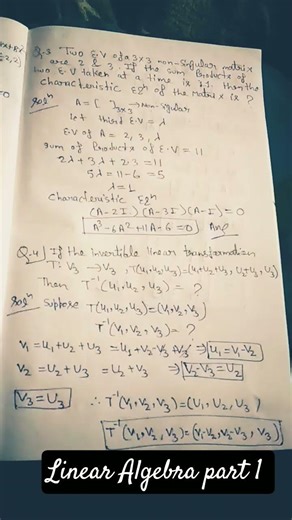 Q.3 Two E.V of a 3x3 non-singular matrix
are 2 & 3. If the sum Products of
two E.V taken at a time is 11. then the
characteristic Eqn of the Matrix is ?
Soln A = [ ]3x3 → non-singular
Let third E.V = λ
E.V of A = 2, 3, λ
sum of Products of E.V = 11
2λ + 3λ + 2·3 = 11
5λ = 11-6 = 5
λ = 1
Characteristic Eqn
(A-2I) (A-3I) (A-I) = 0
A³-6A²+11A-6 = 0 Ans
Q.4 If the invertible linear transformation
T: V3 → V3, T(u1, u2, u3) = (u1+u2+u3, u2+u3, u3)
Then T⁻¹(u1, u2, u3) = ?
Soln Suppose T(u1, u2, u3) = (v1, v2, v3)
T⁻¹(v1, v2, v3) = ?
v1 = u1+u2+u3 = u1+v2-v3+v3 ⇒ u1 = v1-v2
v2 = u2+u3 = u2+v3 ⇒ v2-v3 = u2
v3 = u3 ∴ T⁻¹(v1, v2, v3) = (u1, u2, u3)
T⁻¹(v1, v2, v3) = (v1-v2, v2-v3, v3)
Linear Algebra part 1